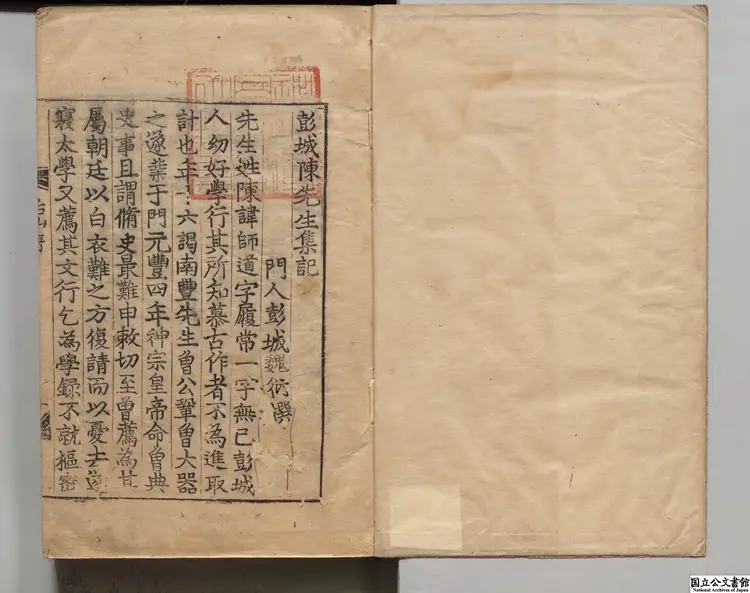 彭城陳先生集記
門人彭城魏衍撰
先生姓陳諱師道字履常一字無已彭城
人幼好學行其所知慕古作者不為進取
計也年十六謁南豐先生曾公鞏曾大器
之遂業于門元豐四年神宗皇帝命曾典
史事且謂脩史最難申敕切至曾薦為其
屬朝廷以白衣難之方復請而以憂去遂
寢太學又薦其文行乞為學録不就樞密
国立公文書館
National Archives of Japan